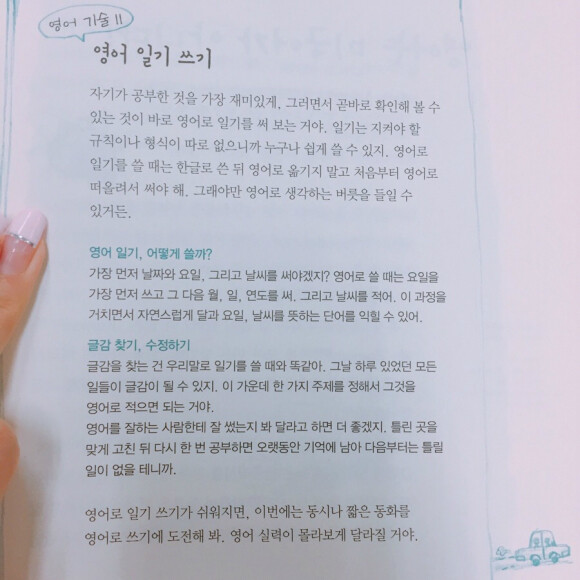 영어 기술 11
영어 일기 쓰기
자기가 공부한 것을 가장 재미있게, 그러면서 곧바로 확인해 볼 수
있는 것이 바로 영어로 일기를 써 보는 거야. 일기는 지켜야 할
규칙이나 형식이 따로 없으니까 누구나 쉽게 쓸 수 있지. 영어로
일기를 쓸 때는 한글로 쓴 뒤 영어로 옮기지 말고 처음부터 영어로
떠올려서 써야 해. 그래야만 영어로 생각하는 버릇을 들일 수
있거든.
영어 일기, 어떻게 쓸까?
가장 먼저 날짜와 요일, 그리고 날씨를 써야겠지? 영어로 쓸 때는 요일을
가장 먼저 쓰고 그 다음 월, 일, 연도를 써. 그리고 날씨를 적어. 이 과정을
거치면서 자연스럽게 달과 요일, 날씨를 뜻하는 단어를 익힐 수 있어.
글감 찾기, 수정하기
글감을 찾는 건 우리말로 일기를 쓸 때와 똑같아. 그날 하루 있었던 모든
일들이 글감이 될 수 있지. 이 가운데 한 가지 주제를 정해서 그것을
영어로 적으면 되는 거야.
영어를 잘하는 사람한테 잘 썼는지 봐 달라고 하면 더 좋겠지. 틀린 곳을
맞게 고친 뒤 다시 한 번 공부하면 오랫동안 기억에 남아 다음부터는 틀릴
일이 없을 테니까.
영어로 일기 쓰기가 쉬워지면, 이번에는 동시나 짧은 동화를
영어로 쓰기에 도전해 봐. 영어 실력이 몰라보게 달라질 거야.